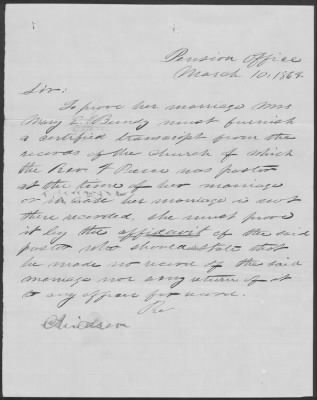 Pension Office
March 10, 1864
Sir:
To prove her marriage Mrs
Mary E. Bundy must furnish
a certified transcript from the
records of the church of which
the Rev. F Pierce was pastor
at the time of her marriage
or in case her marriage is not
there recorded, she must prove
it by the affidavit of the said
pastor who should state that
he made no record of the said
marriage nor any return of it
to any officer for record.
Re
Children